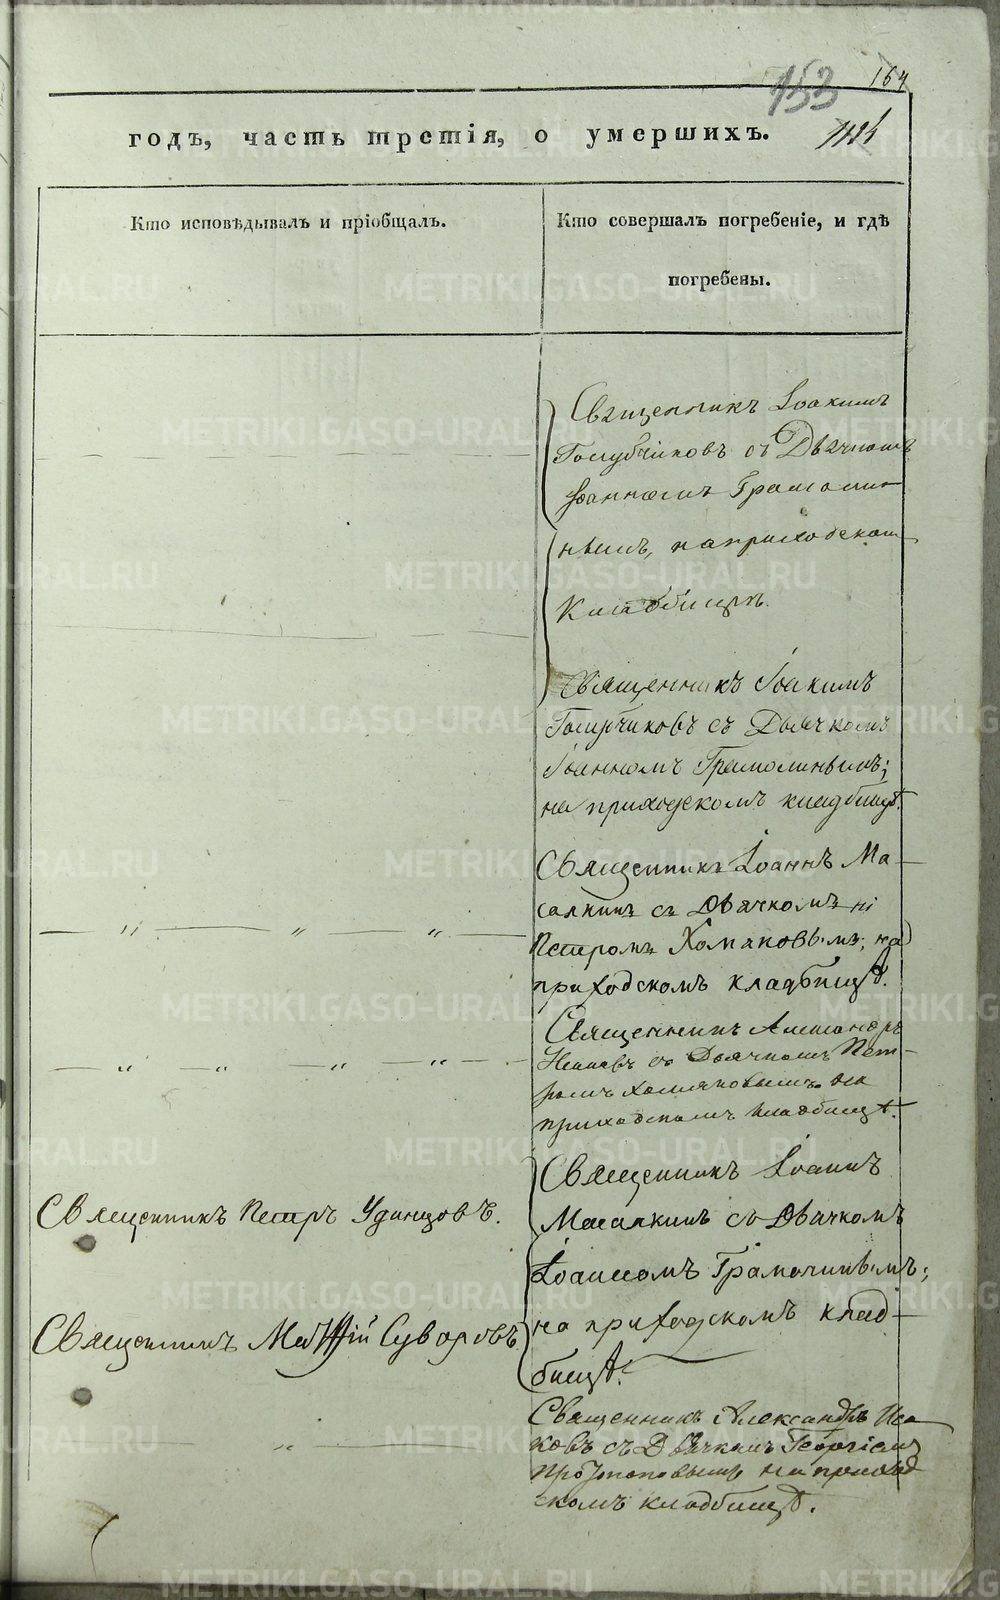 153 164
годъ, часть третія, о умершихъ.
Кто исповѣдывалъ и пріобщалъ.
Кто совершалъ погребеніе, и гдѣ
погребены.
Священникъ Іоакимъ
Голубчиковъ съ Дьячкомъ
Іоанномъ Грамолин
нымъ, на приходскомъ
Кладбищѣ.
Священникъ Іоакимъ
Голубчиковъ съ Дьячкомъ
Іоанномъ Грамолинымъ;
на приходскомъ кладбищѣ.
Священникъ Іоаннъ Ма-
салкинъ съ Дьячкомъ
Петромъ Хомяковымъ; на
приходскомъ кладбищѣ.
Священникъ Александръ
съ Дьячкомъ Пет-
ромъ Хомяковымъ на
приходскомъ кладбищѣ.
Священникъ Петръ Удинцовъ.
Священникъ Іоаннъ
Масалкинъ съ Дьячкомъ
Іоанномъ
Священникъ Матѳій Суворовъ
на приходскомъ клад-
бищѣ.
Священникъ Александръ Иса-
ковъ съ Дьячкомъ Георгіемъ
Протопоповымъ на приход
скомъ кладбищѣ.
METRIKI.GASO-URAL.RU